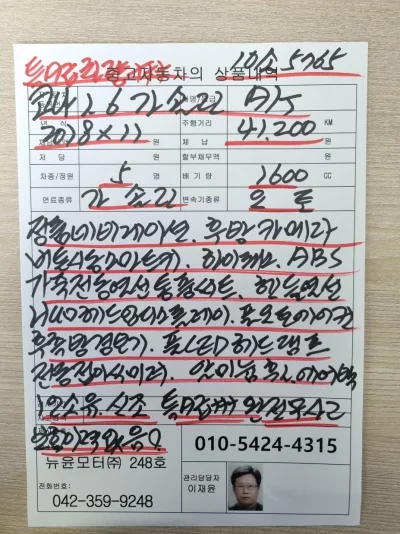 특A급최강 10소5765
중고자동차의 상품내역
코나 1.6 가솔린 A/S
년 식 주행거리
2018×11 41,200 KM
원 체 납 원
저 당 원 할부채무액 원
차종/정원 5 명 배 기 량 1600 CC
연료종류 가솔린 변속기종류 오토
정품네비게이션. 후방카메라
버튼시동스마트키. 하이패스. ABS
가죽전동열선통풍시트. 핸들열선
HUD헤드업디스플레이. 풀오토에어컨
후측방경보기. 풀LED헤드램프
전동접이식미러. 알미늄휠. 에어백
1인소유. 신조 특A급 완전무사고
보험이력없음!
010-5424-4315
뉴윤모터㈜ 248호
전화번호: 관리담당자
042-359-9248 이재윤